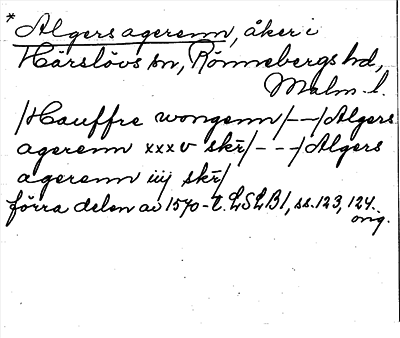 * Algers agerenn, åker i
Härslövs sn, Rönnebergs hd,
Malm. l.
/Hauffre wongenn/---/Algers
agerenn xxxv skr/---/Algers
agerenn iiij skr/
förra delen av 1570-t. LSLB1, ss. 123, 124.
orig.